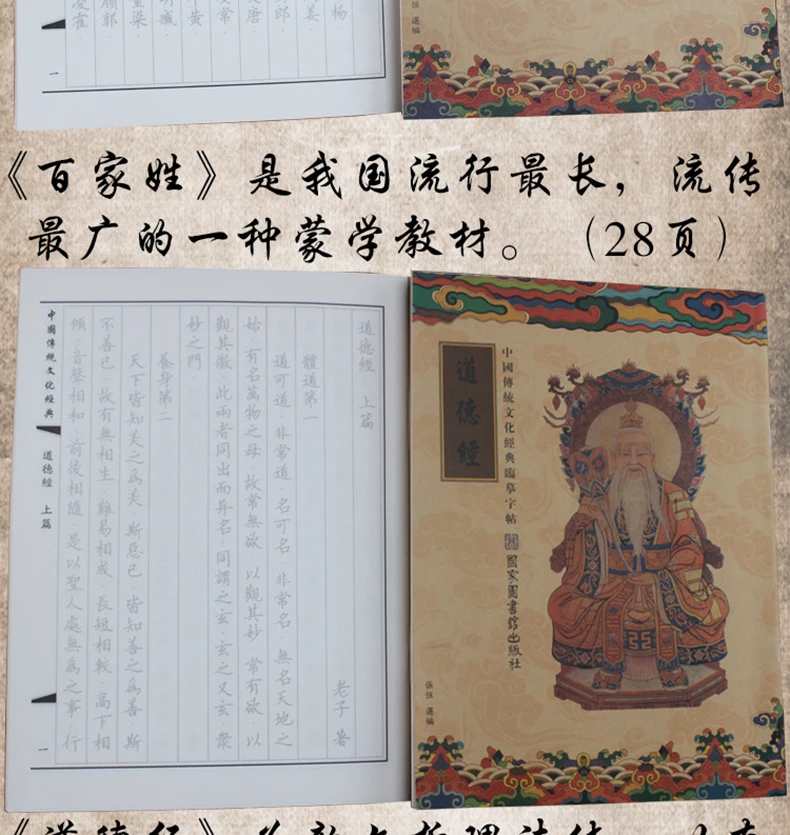 選編
一
《百家姓》是我国流行最长，流传
最广的一种蒙学教材。（28页）
道德經 上篇
老子 著
體道第一
道可道·非常道·名可名·非常名·無名天地之
始·有名萬物之母·故常無欲·以觀其妙·常有欲·以
觀其徼·此兩者同出而异名·同謂之玄·玄之又玄·衆
妙之門
養身第二
天下皆知美之為美·斯惡已·皆知善之為善·斯
不善已·故有無相生·難易相成·長短相較·高下相
傾·音聲相和·前後相隨·是以聖人處無為之事·行
中國傳統文化經典
道德經 上篇
一
道德經
中國傳統文化經典臨摹字帖
國家圖書館出版社
張恒 選編